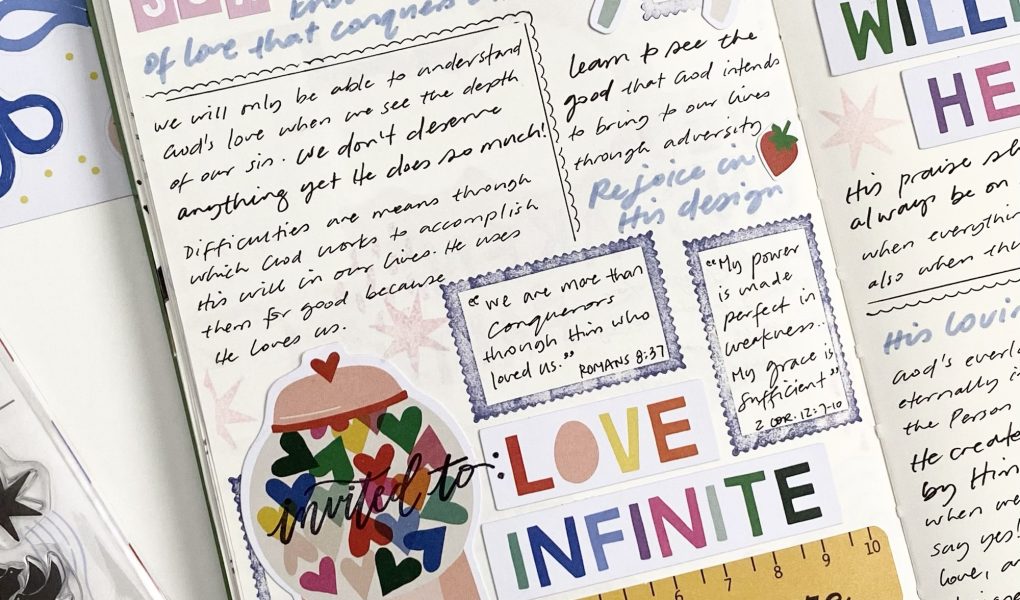 of love that conquers
we will only be able to understand
God's love when we see the depth
of our sin. we don't deserve
anything yet He does so much!
Difficulties are means through
which God works to accomplish
His will in our lives. He uses
them for good because
He loves us.
learn to see the
good that God intends
to bring to our lives
through adversity
Rejoice in
His design
"we are more than
conquerors
through Him who
loved us."
ROMANS 8:37
"My power
is made
perfect in
weakness..
My grace is
sufficient"
2 COR. 12:7-10
invited to:
LOVE
INFINITE
6 7 8 9 10
WILL
HE
His praise
always be on
when everythin
also when th
His lovin
God's everl
eternally i
the Person
He create
by Him
when we
say yes!
love, a